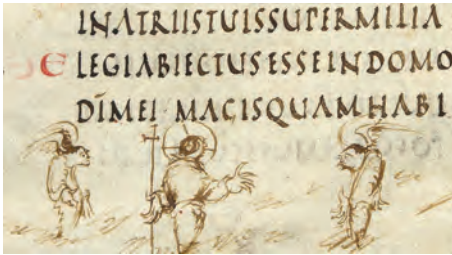 INATRIISTUISSUPERMILIA
ELEGIABIECTUSESSEINDOMO
DĪMEI MAGISQUAMHABI